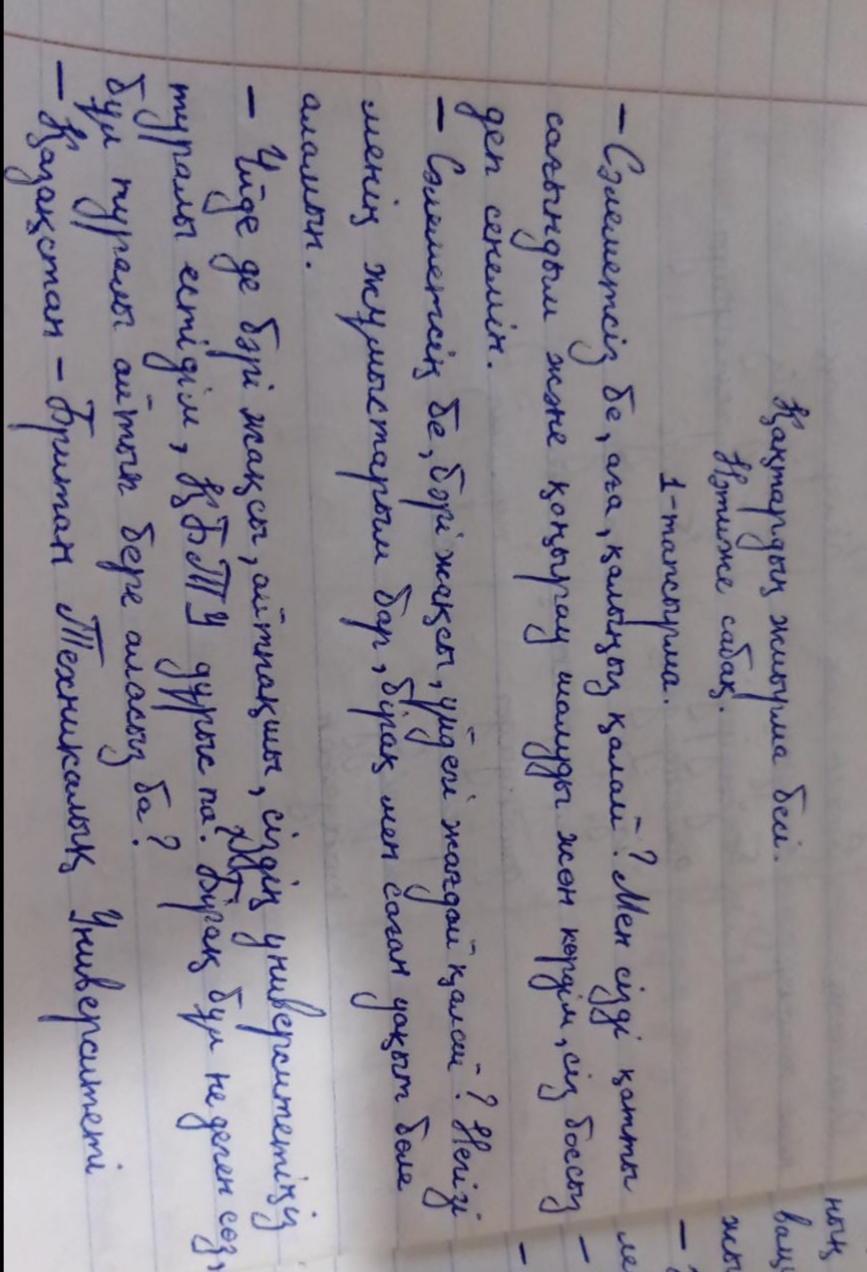 Қаңтардың жиырма бесі.
Нәтиже сабақ.
1-тапсырма.
– Сәлеметсіз бе, аға, қалыңыз қалай? Мен сізді қатты
сағындым және қоңырау шалуды жөн көрдім, сіз боссыз
деп сенемін.
– Сәлеметсің бе, бәрі жақсы, үйдегі жағдай қалай? Негізі
менің жұмыстарым бар, бірақ мен саған уақыт бөле
аламын.
– Үйде де бәрі жақсы, айтпақшы, сіздің университетіңіз
туралы естідім, ҚБТУ дұрыс па. Бірақ бұл не деген сөз,
бұл туралы айтып бере аласыз ба?
– Қазақстан – Британ Техникалық Университеті
ның
ващ
жы
–
ле
–
–